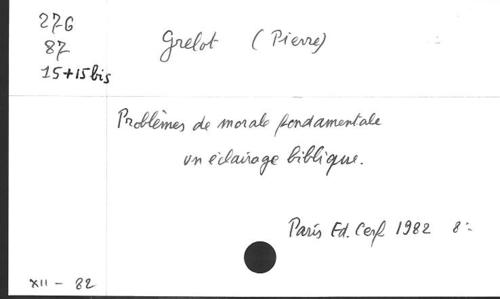 276
87
15+15bis
Grelot (Pierre)
Problèmes de morale fondamentale
un éclairage biblique.
Paris Ed. Cerf 1982 8:
XII - 82